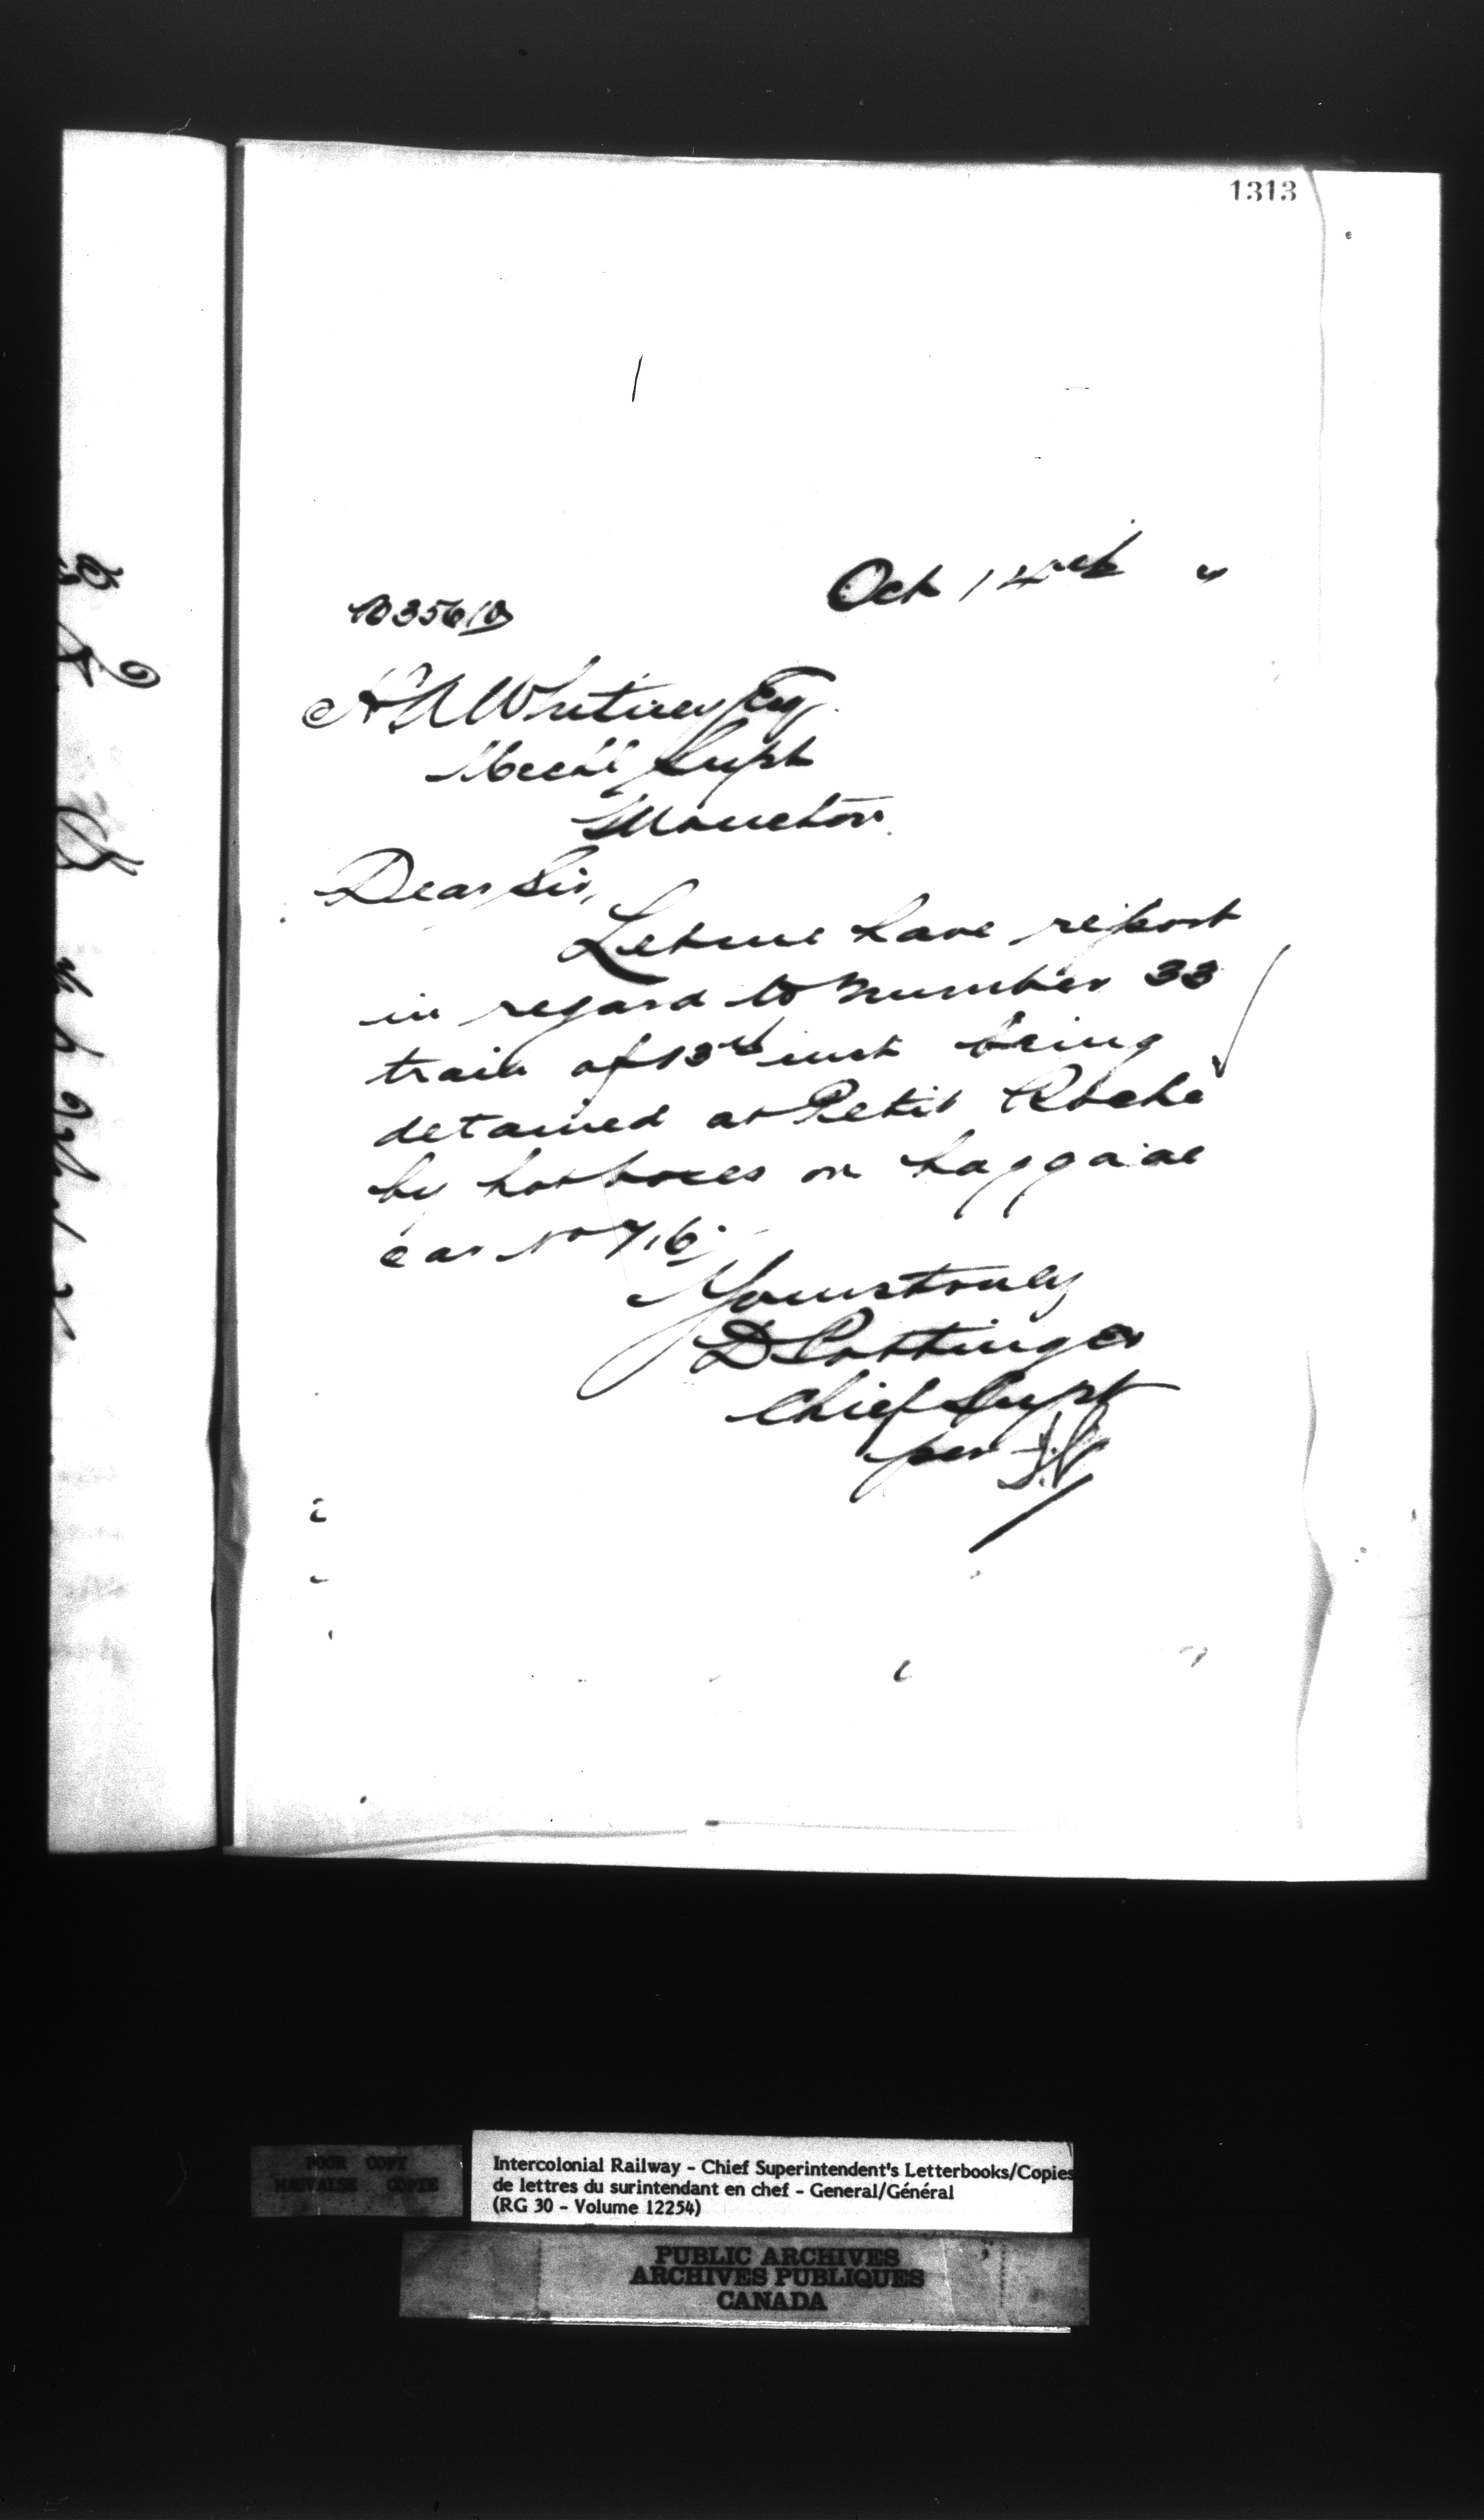 1313
Oct 14th "
B3561B
H A Whitney Esq
Mecal Supt
Moncton.
Dear Sir,
Let me have report
in regard to number 33
train of 13th inst being
detained at Petit Roche
by hot boxes on baggage
car No 716
Yours truly
D Pottinger
Chief Supt
per
POOR COPY
MAUVAISE COPIE
Intercolonial Railway - Chief Superintendent's Letterbooks/Copies
de lettres du surintendant en chef - General/Général
(RG 30 - Volume 12254)
PUBLIC ARCHIVES
ARCHIVES PUBLIQUES
CANADA